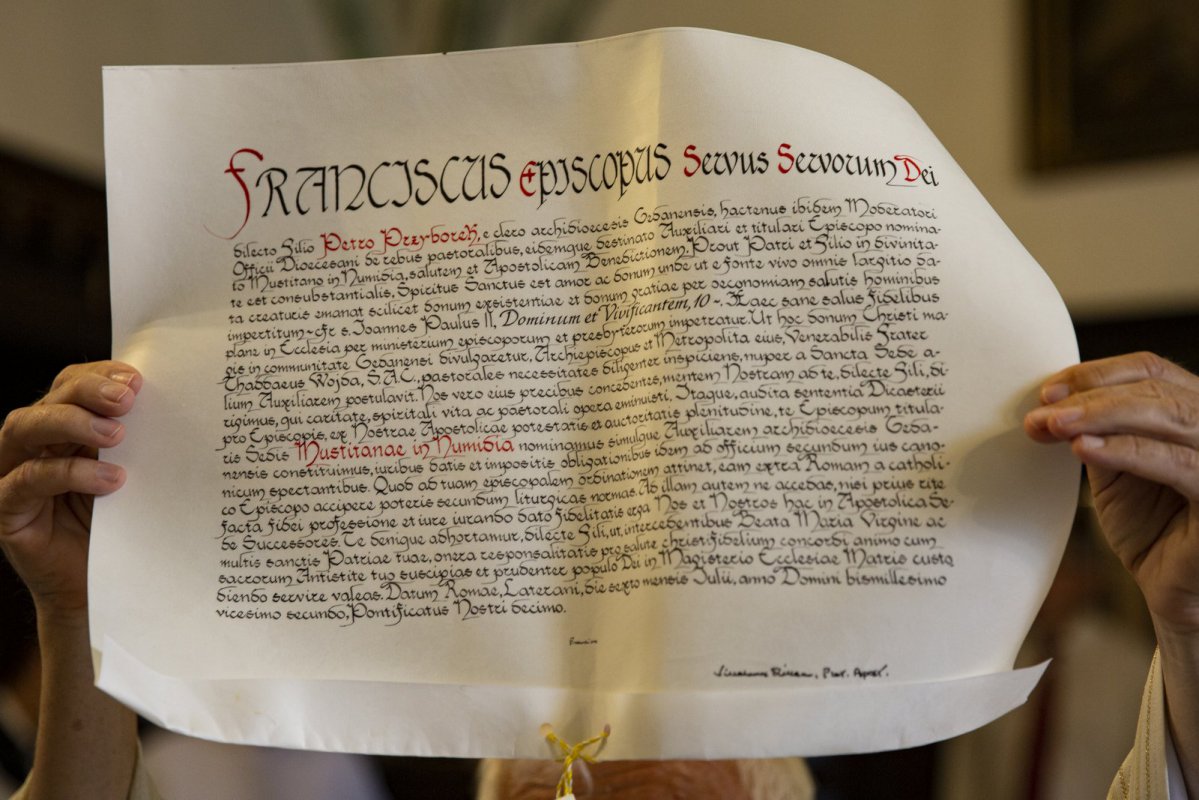 Franciscus Episcopus Servus Servorum Dei
dilecto Filio Petro Przyborek, e clero archidioecesis Gedanensis, hactenus ibidem Moderatori
Officii Dioecesani de rebus pastoralibus, eidemque destinato Auxiliari et titulari Episcopo nomina-
to Mustitano in Numidia, salutem et Apostolicam Benedictionem. Prout Patri et Filio in divinita-
te est consubstantialis, Spiritus Sanctus est amor ac donum unde ut e fonte vivo omnis largitio da-
ta creaturis emanat scilicet donum exsistentiae et donum gratiae per oeconomiam salutis hominibus
impertitum ~ cfr s. Ioannes Paulus II, Dominum et Vivificantem, 10 ~. Haec sane salus fidelibus
plane in Ecclesia per ministerium episcoporum et presbyterorum impetratur. Ut hoc donum Christi ma-
gis in communitate Gedanensi divulgaretur, Archiepiscopus et Metropolita eius, Venerabilis Frater
Thaddaeus Wojda, S.A.C., pastorales necessitates diligenter inspiciens, nuper a Sancta Sede a-
lium Auxiliarem postulavit. Nos vero eius precibus concedentes, mentem Nostram ad te, dilecte Fili, di-
rigimus, qui caritate, spiritali vita ac pastorali opera eminuisti. Itaque, audita sententia Dicasterii
pro Episcopis, ex Nostrae Apostolicae potestatis et auctoritatis plenitudine, te Episcopum titula-
ris Sedis Mustitanae in Numidia nominamus simulque Auxiliarem archidioecesis Geda-
nensis constituimus, iuribus datis et impositis obligationibus idem ad officium secundum ius cano-
nicum spectantibus. Quod ad tuam episcopalem ordinationem attinet, eam extra Romam a catholi-
co Episcopo accipere poteris secundum liturgicas normas. Ad illam autem ne accedas, nisi prius rite
facta fidei professione et iure iurando dato fidelitatis erga Nos et Nostros hac in Apostolica Se-
de Successores. Te denique adhortamur, dilecte Fili, ut, intercedentibus Beata Maria Virgine ac
multis sanctis Patriae tuae, onera responsalitatis pro salute christifidelium concordi animo cum
sacrorum Antistite tuo suscipias et prudenter populo Dei in Magisterio Ecclesiae Matris custo
diendo servire valeas. Datum Romae, Laterani, die sexto mensis Iulii, anno Domini bismillesimo
vicesimo secundo, Pontificatus Nostri decimo.
Franciscus
Prot. Apost.